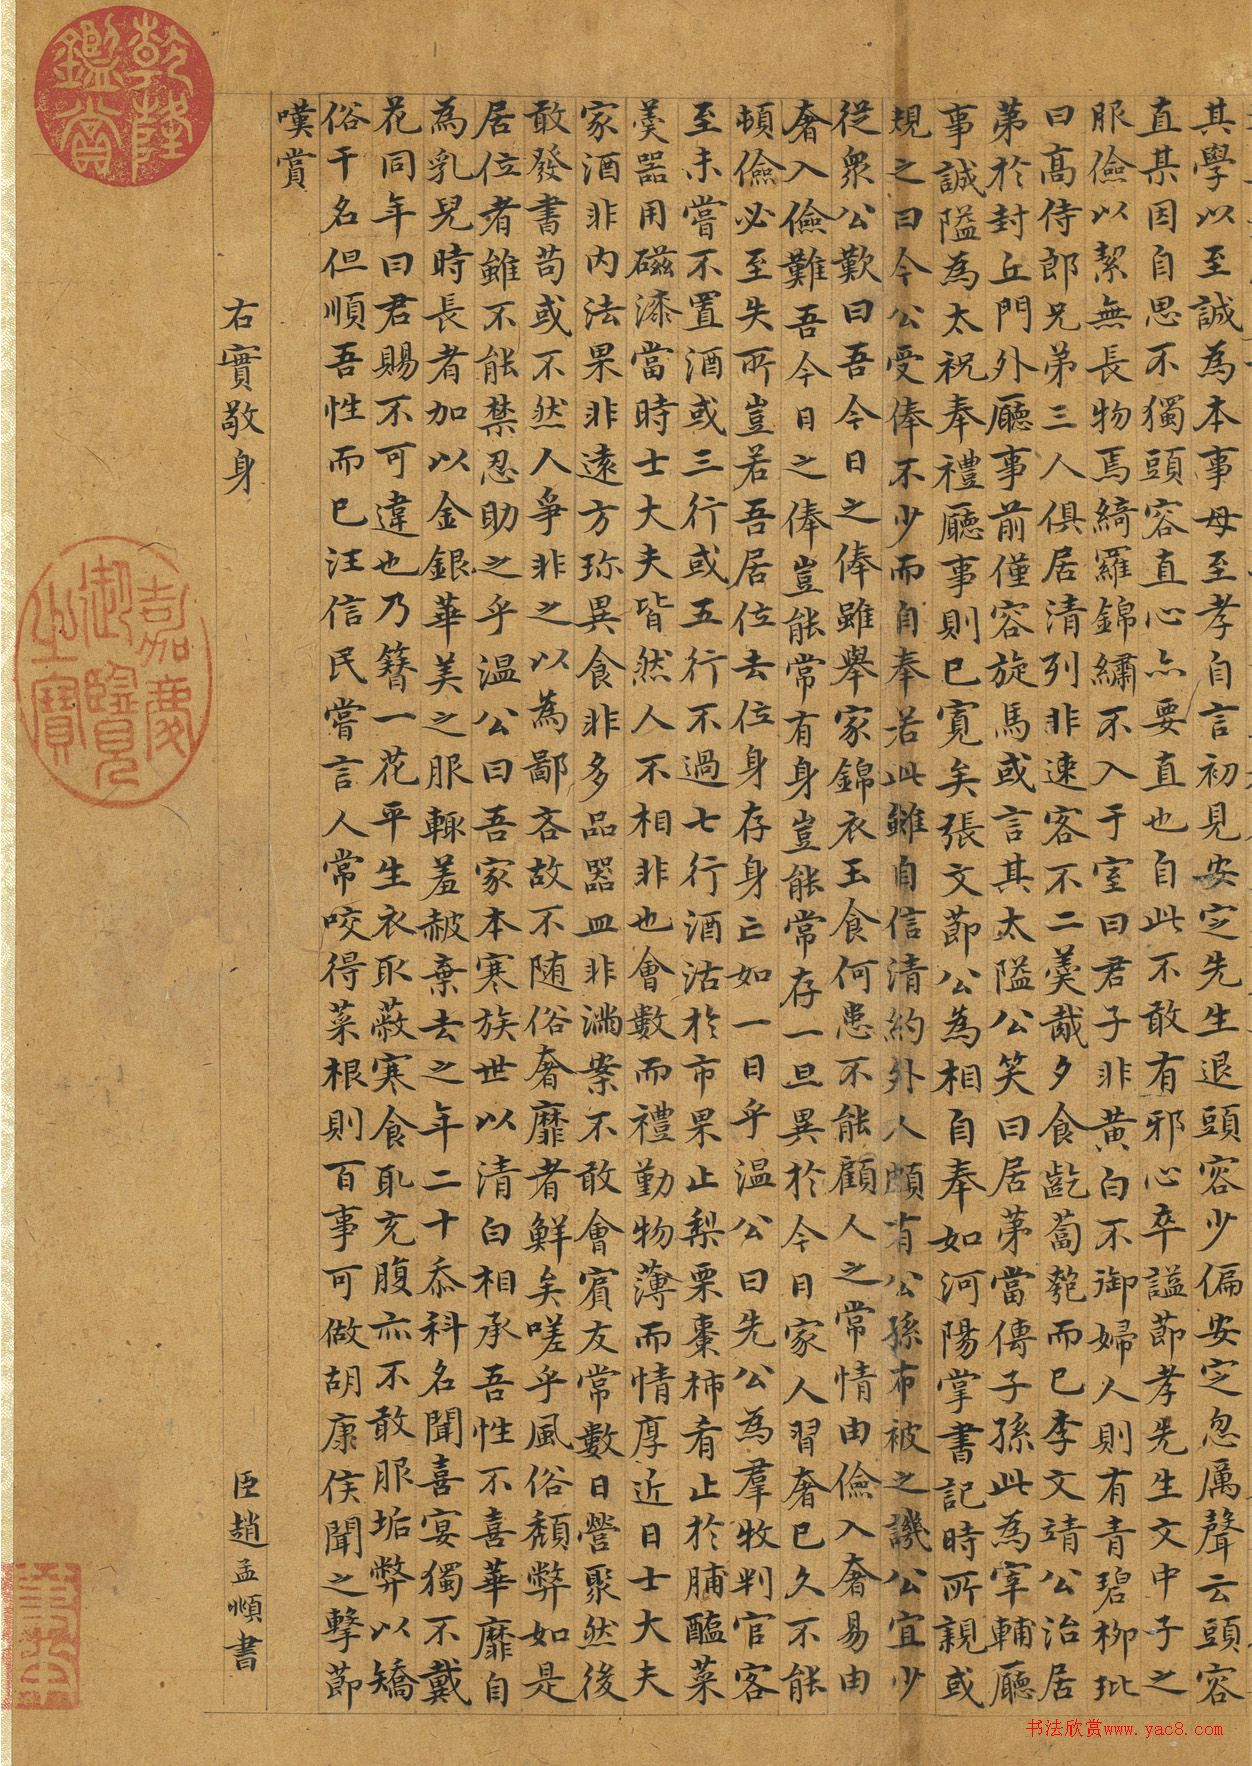 其學以至誠為本事母至孝自言初見安定先生退頭容少偏安定忽厲聲云頭容
直某因自思不獨頭容直心亦要直也自此不敢有邪心卒諡節孝先生文中子之
服儉以絜無長物焉綺羅錦繡不入于室曰君子非黃白不御婦人則有青碧柳玭
曰高侍郎兄弟三人俱居清列非速客不二羹胾夕食齕蔔匏而已李文靖公治居
第於封丘門外廳事前僅容旋馬或言其太隘公笑曰居第當傳子孫此為宰輔廳
事誠隘為太祝奉禮廳事則已寬矣張文節公為相自奉如河陽掌書記時所親或
規之曰今公受俸不少而自奉若此雖自信清約外人頗有公孫布被之譏公宜少
從眾公歎曰吾今日之俸雖舉家錦衣玉食何患不能顧人之常情由儉入奢易由
奢入儉難吾今日之俸豈能常有身豈能常存一旦異於今日家人習奢已久不能
頓儉必至失所豈若吾居位去位身存身亡如一日乎温公曰先公為羣牧判官客
至未嘗不置酒或三行或五行不過七行酒沽於市果止梨栗棗柿肴止於脯醢菜
羹器用磁漆當時士大夫皆然人不相非也會數而禮勤物薄而情厚近日士大夫
家酒非內法果非遠方珎異食非多品器皿非滿案不敢會賓友常數日營聚然後
敢發書苟或不然人爭非之以為鄙吝故不随俗奢靡者鮮矣嗟乎風俗頹弊如是
居位者雖不能禁忍助之乎温公曰吾家本寒族世以清白相承吾性不喜華靡自
為乳兒時長者加以金銀華美之服輒羞赧棄去之年二十忝科名聞喜宴獨不戴
花同年曰君賜不可違也乃簪一花平生衣取蔽寒食取充腹亦不敢服垢弊以矯
俗干名但順吾性而已汪信民嘗言人常咬得菜根則百事可做胡康侯聞之擊節
嘆賞
右實敬身
臣趙孟頫書
乾隆鑑賞
嘉慶御覽之寶
书法欣赏www.yac8.com